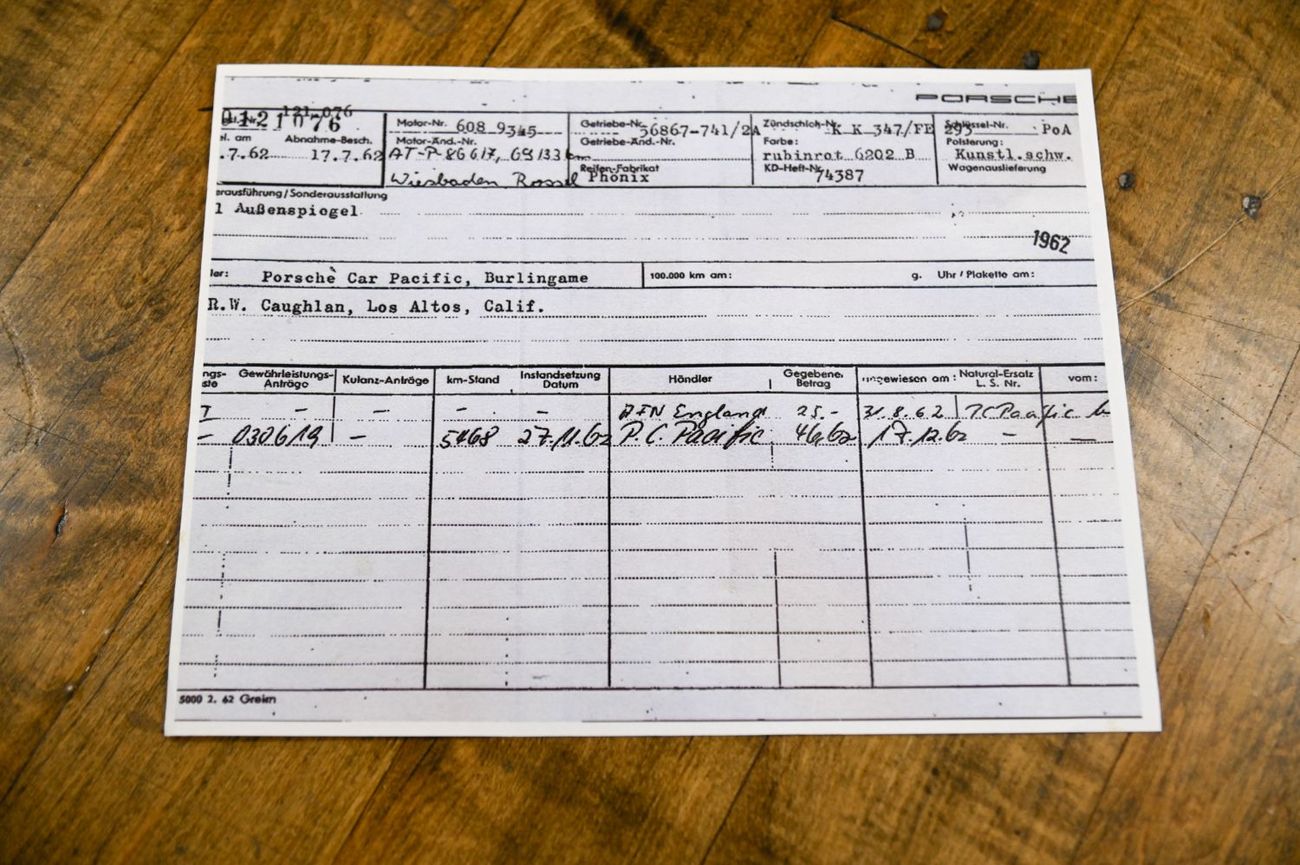 PORSCHE
121 076
0121076
Motor-Nr. 608 9345
Getriebe-Nr. 56867-741/2A
Zündschloh-Nr. K K 347/FE 295
Schlüssel-Nr. PoA
l. am Abnahme-Besch.
Motor-Änd.-Nr.
Getriebe-Änd.-Nr.
Farbe:
Polsterung:
.7.62 17.7.62
AT-P-86617, 69133 km
rubinrot 6202 B
Kunstl.schw.
Wiesbaden
Reifen-Fabrikat
Phönix
KD-Heft-Nr. 74387
Wagenauslieferung
erausführung/Sonderausstattung
1 Außenspiogel
1962
ler: Porsche Car Pacific, Burlingame
100.000 km am:
g. Uhr / Plakette am:
R.W. Caughlan, Los Altos, Calif.
Gewährleistungs-Anträge Kulanz-Anträge km-Stand Instandsetzung Datum Händler Gegebene. Betrag ngewiesen am: Natural-Ersatz L. S. Nr. vom:
– – – – England 25.- 31.8.62 P.C. Pacific
– 030619 – 5468 27.11.62 P.C. Pacific 46,62 17.12.62 – –
5000 2. 62 Greim